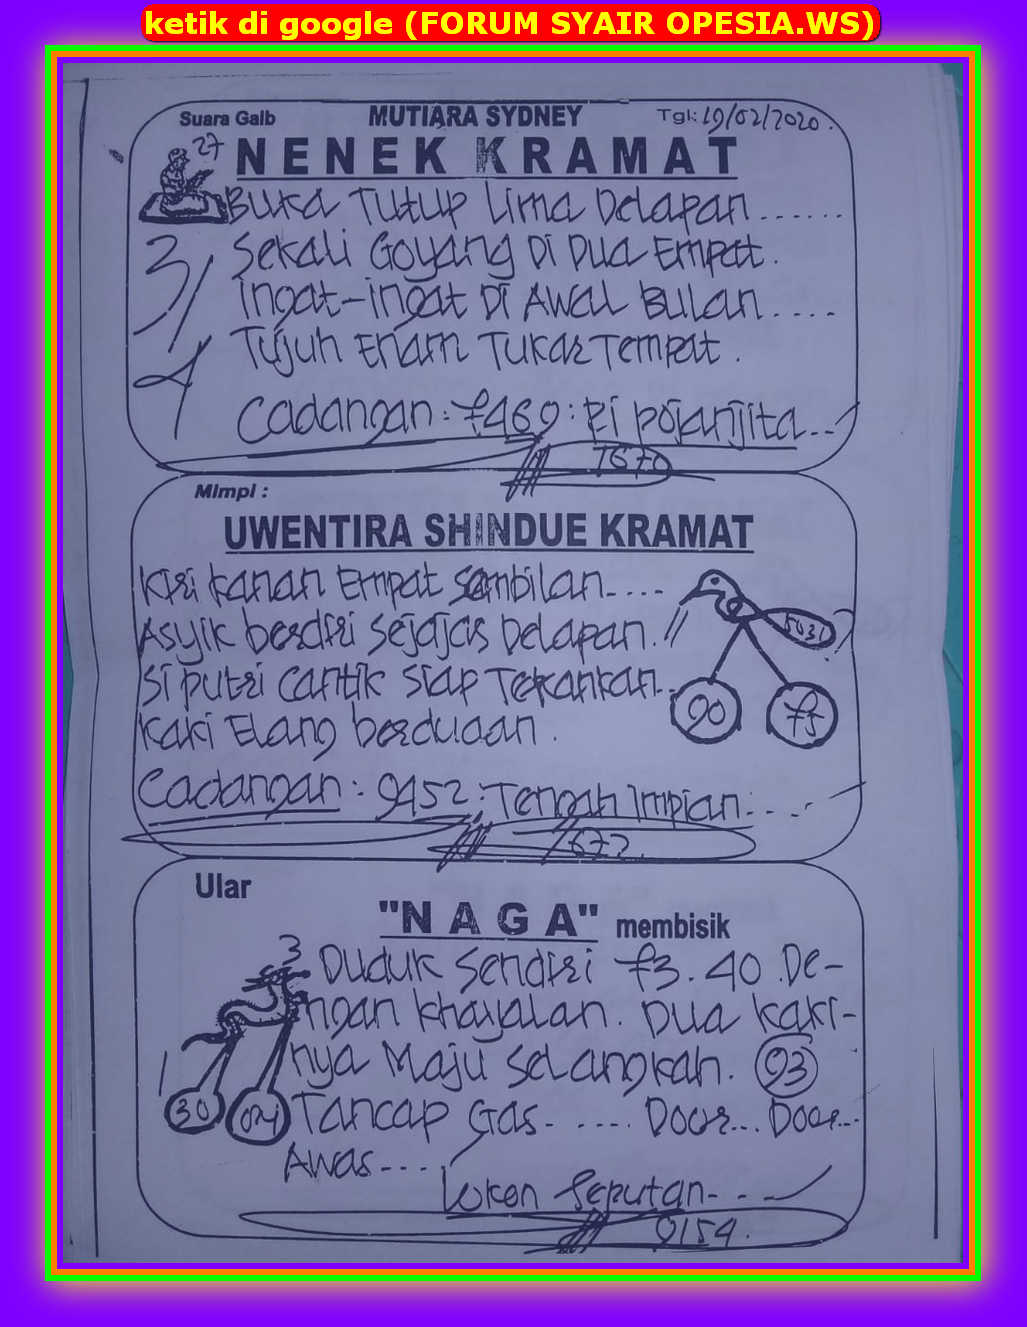 ketik di google (FORUM SYAIR OPESIA.WS)
Suara Gaib MUTIARA SYDNEY Tgl: 19/02/2020.
27 NENEK KRAMAT
Buka Tutup Lima Delapan......
3/ Sekali Goyang Di Dua Empat.
Ingat-ingat Di Awal Bulan....
4 Tujuh Enam Tukar Tempat.
Cadangan: 7469:
Mimpi :
UWENTIRA SHINDUE KRAMAT
Kiri kanan Empat Sembilan....
Asyik berdiri sejajar Delapan. 5031
Si putri cantik siap Tekankan.
Kaki Elang berduaan. 90 75
Cadangan: 9452: Tengah Impian....
Ular
"NAGA" membisik
3 Duduk Sendiri 73.40 De-
ngan khayalan. Dua kaki-
nya Maju selangkah. 93
30 Tancap Gas..... Door... Door...
Awas....
Seputan...
9154.